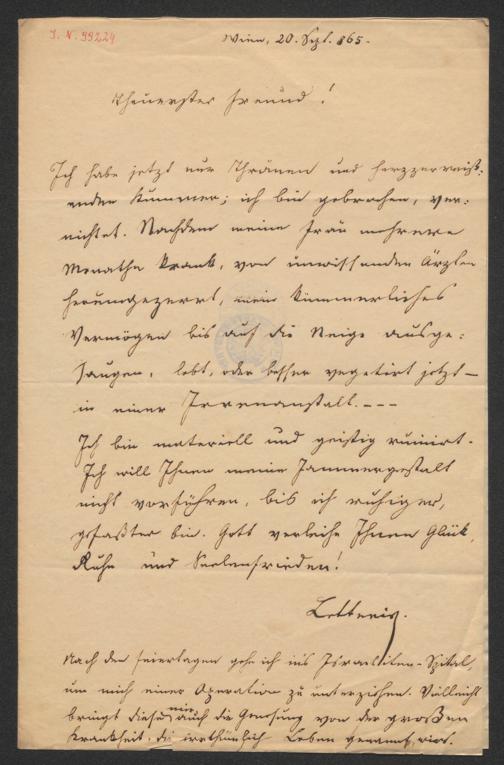 I. N. 99224
Wien, 20. Sept. 865.
Theuerster Freund!
Ich habe jetzt nur Thränen und herzzerreiß-
enden Kummer; ich bin gebrochen, ver-
nichtet. Nachdem meine Frau mehrere
Monathe krank, von unwissenden Ärzten
herumgezerrt, mein kümmerliches
Vermögen bis auf die Neige ausge-
saugen, lebt, oder besser vegetirt jetzt –
in einer Irrenanstalt. – – –
Ich bin materiell und geistig ruinirt.
Ich will Ihnen meine Jammergestalt
nicht vorführen, bis ich ruhiger,
gefaßter bin. Gott verleihe Ihnen Glück,
Ruhe und Seelenfrieden!
Letteris.
Nach den Feiertagen gehe ich ins Israeliten-Spital,
um mich einer Operation zu unterziehen. Vielleicht
bringt diese mir auch die Genesung von der großen
Krankheit, die irrthümlich Leben genannt wird.